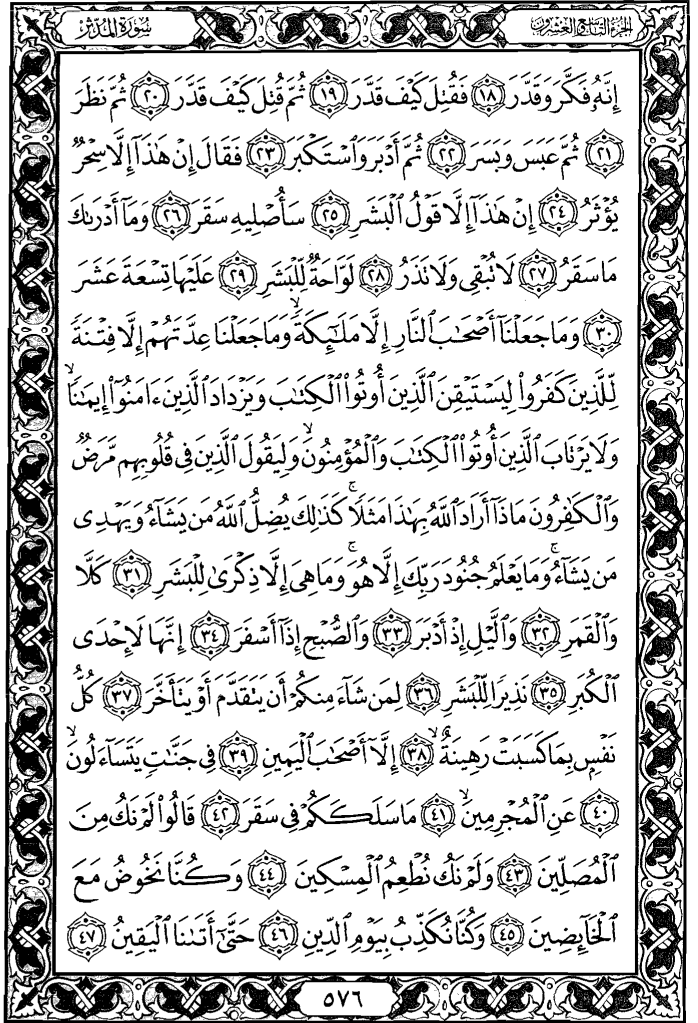 الجزء التاسع والعشرون
سورة المدثر
إِنَّهُۥ فَكَّرَ وَقَدَّرَ ١٨ فَقُتِلَ كَيۡفَ قَدَّرَ ١٩ ثُمَّ قُتِلَ كَيۡفَ قَدَّرَ ٢٠ ثُمَّ نَظَرَ
٢١ ثُمَّ عَبَسَ وَبَسَرَ ٢٢ ثُمَّ أَدۡبَرَ وَٱسۡتَكۡبَرَ ٢٣ فَقَالَ إِنۡ هَٰذَآ إِلَّا سِحۡرٞ
يُؤۡثَرُ ٢٤ إِنۡ هَٰذَآ إِلَّا قَوۡلُ ٱلۡبَشَرِ ٢٥ سَأُصۡلِيهِ سَقَرَ ٢٦ وَمَآ أَدۡرَىٰكَ
مَا سَقَرُ ٢٧ لَا تُبۡقِي وَلَا تَذَرُ ٢٨ لَوَّاحَةٞ لِّلۡبَشَرِ ٢٩ عَلَيۡهَا تِسۡعَةَ عَشَرَ
٣٠ وَمَا جَعَلۡنَآ أَصۡحَٰبَ ٱلنَّارِ إِلَّا مَلَٰٓئِكَةٗۖ وَمَا جَعَلۡنَا عِدَّتَهُمۡ إِلَّا فِتۡنَةٗ
لِّلَّذِينَ كَفَرُواْ لِيَسۡتَيۡقِنَ ٱلَّذِينَ أُوتُواْ ٱلۡكِتَٰبَ وَيَزۡدَادَ ٱلَّذِينَ ءَامَنُوٓاْ إِيمَٰنٗا
وَلَا يَرۡتَابَ ٱلَّذِينَ أُوتُواْ ٱلۡكِتَٰبَ وَٱلۡمُؤۡمِنُونَ وَلِيَقُولَ ٱلَّذِينَ فِي قُلُوبِهِم مَّرَضٞ
وَٱلۡكَٰفِرُونَ مَاذَآ أَرَادَ ٱللَّهُ بِهَٰذَا مَثَلٗاۚ كَذَٰلِكَ يُضِلُّ ٱللَّهُ مَن يَشَآءُ وَيَهۡدِي
مَن يَشَآءُۚ وَمَا يَعۡلَمُ جُنُودَ رَبِّكَ إِلَّا هُوَۚ وَمَا هِيَ إِلَّا ذِكۡرَىٰ لِلۡبَشَرِ ٣١ كَلَّا
وَٱلۡقَمَرِ ٣٢ وَٱلَّيۡلِ إِذۡ أَدۡبَرَ ٣٣ وَٱلصُّبۡحِ إِذَآ أَسۡفَرَ ٣٤ إِنَّهَا لَإِحۡدَى
ٱلۡكُبَرِ ٣٥ نَذِيرٗا لِّلۡبَشَرِ ٣٦ لِمَن شَآءَ مِنكُمۡ أَن يَتَقَدَّمَ أَوۡ يَتَأَخَّرَ ٣٧ كُلُّ
نَفۡسِۭ بِمَا كَسَبَتۡ رَهِينَةٌ ٣٨ إِلَّآ أَصۡحَٰبَ ٱلۡيَمِينِ ٣٩ فِي جَنَّٰتٖ يَتَسَآءَلُونَ
٤٠ عَنِ ٱلۡمُجۡرِمِينَ ٤١ مَا سَلَكَكُمۡ فِي سَقَرَ ٤٢ قَالُواْ لَمۡ نَكُ مِنَ
ٱلۡمُصَلِّينَ ٤٣ وَلَمۡ نَكُ نُطۡعِمُ ٱلۡمِسۡكِينَ ٤٤ وَكُنَّا نَخُوضُ مَعَ
ٱلۡخَآئِضِينَ ٤٥ وَكُنَّا نُكَذِّبُ بِيَوۡمِ ٱلدِّينِ ٤٦ حَتَّىٰٓ أَتَىٰنَا ٱلۡيَقِينُ ٤٧
٥٧٦